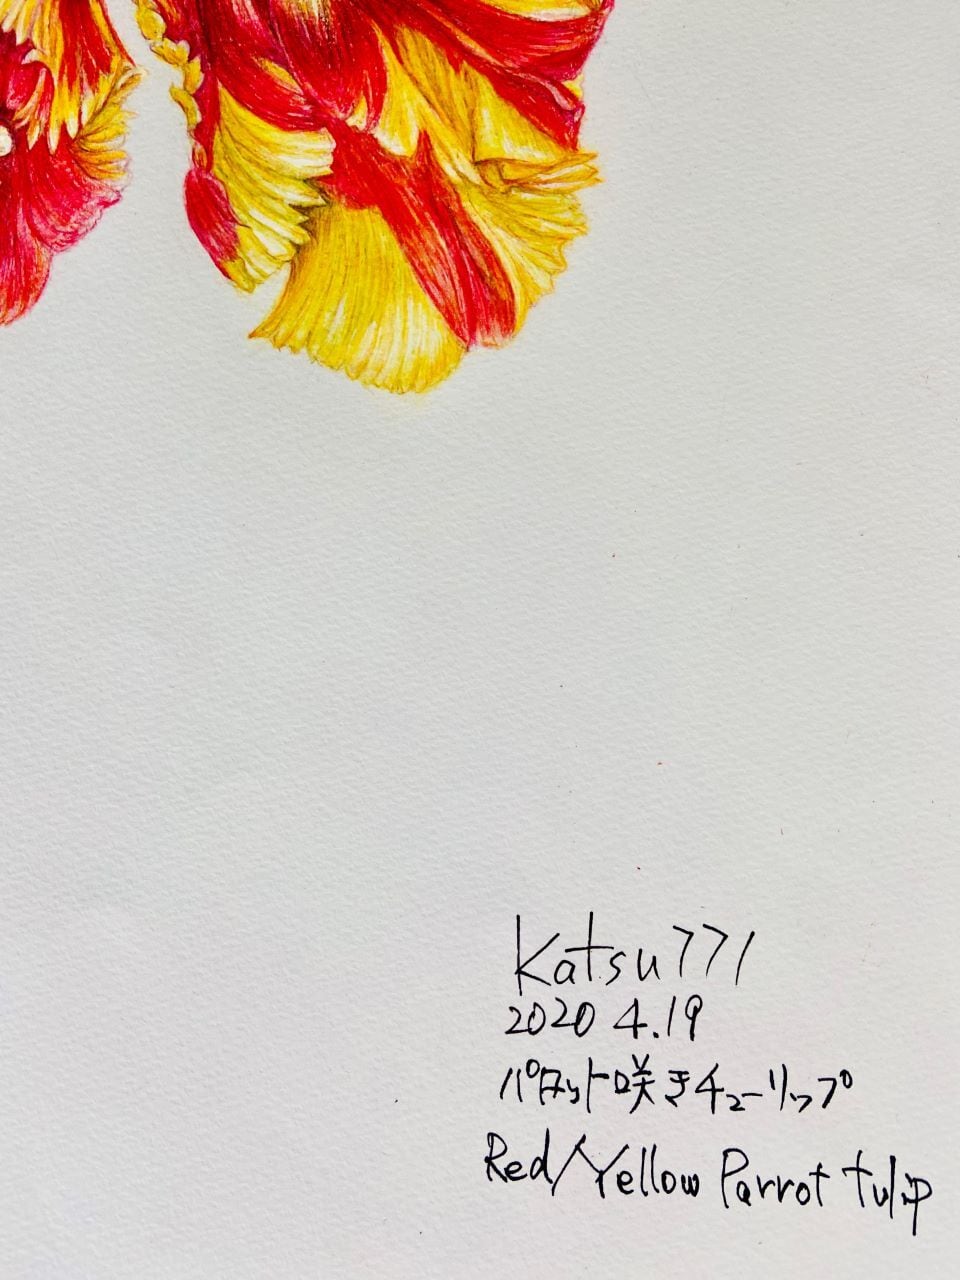 Katsu771
2020 4.19
パロット咲きチューリップ
Red/Yellow Parrot tulip